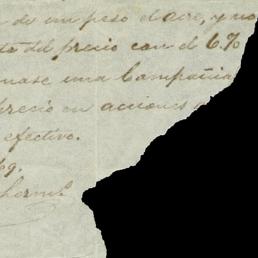 de un peso el aire, y no
del precio con el 6.%
mase una Compañia
precio en acciones
efectivo.
69.